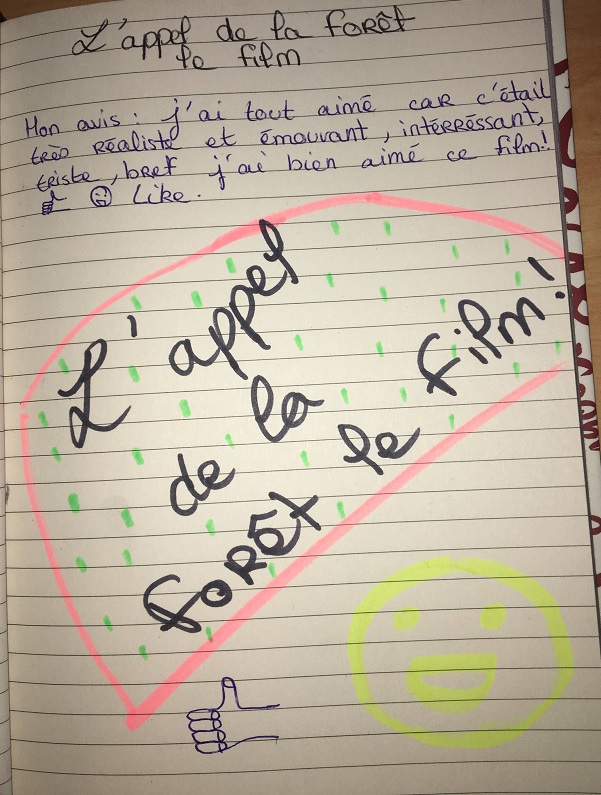 L'appel de la forêt
le film
Mon avis : j'ai tout aimé car c'était
très réaliste et émouvant, interréssant,
triste, bref j'ai bien aimé ce film!
Like.
L'appel
de la
forêt le film!